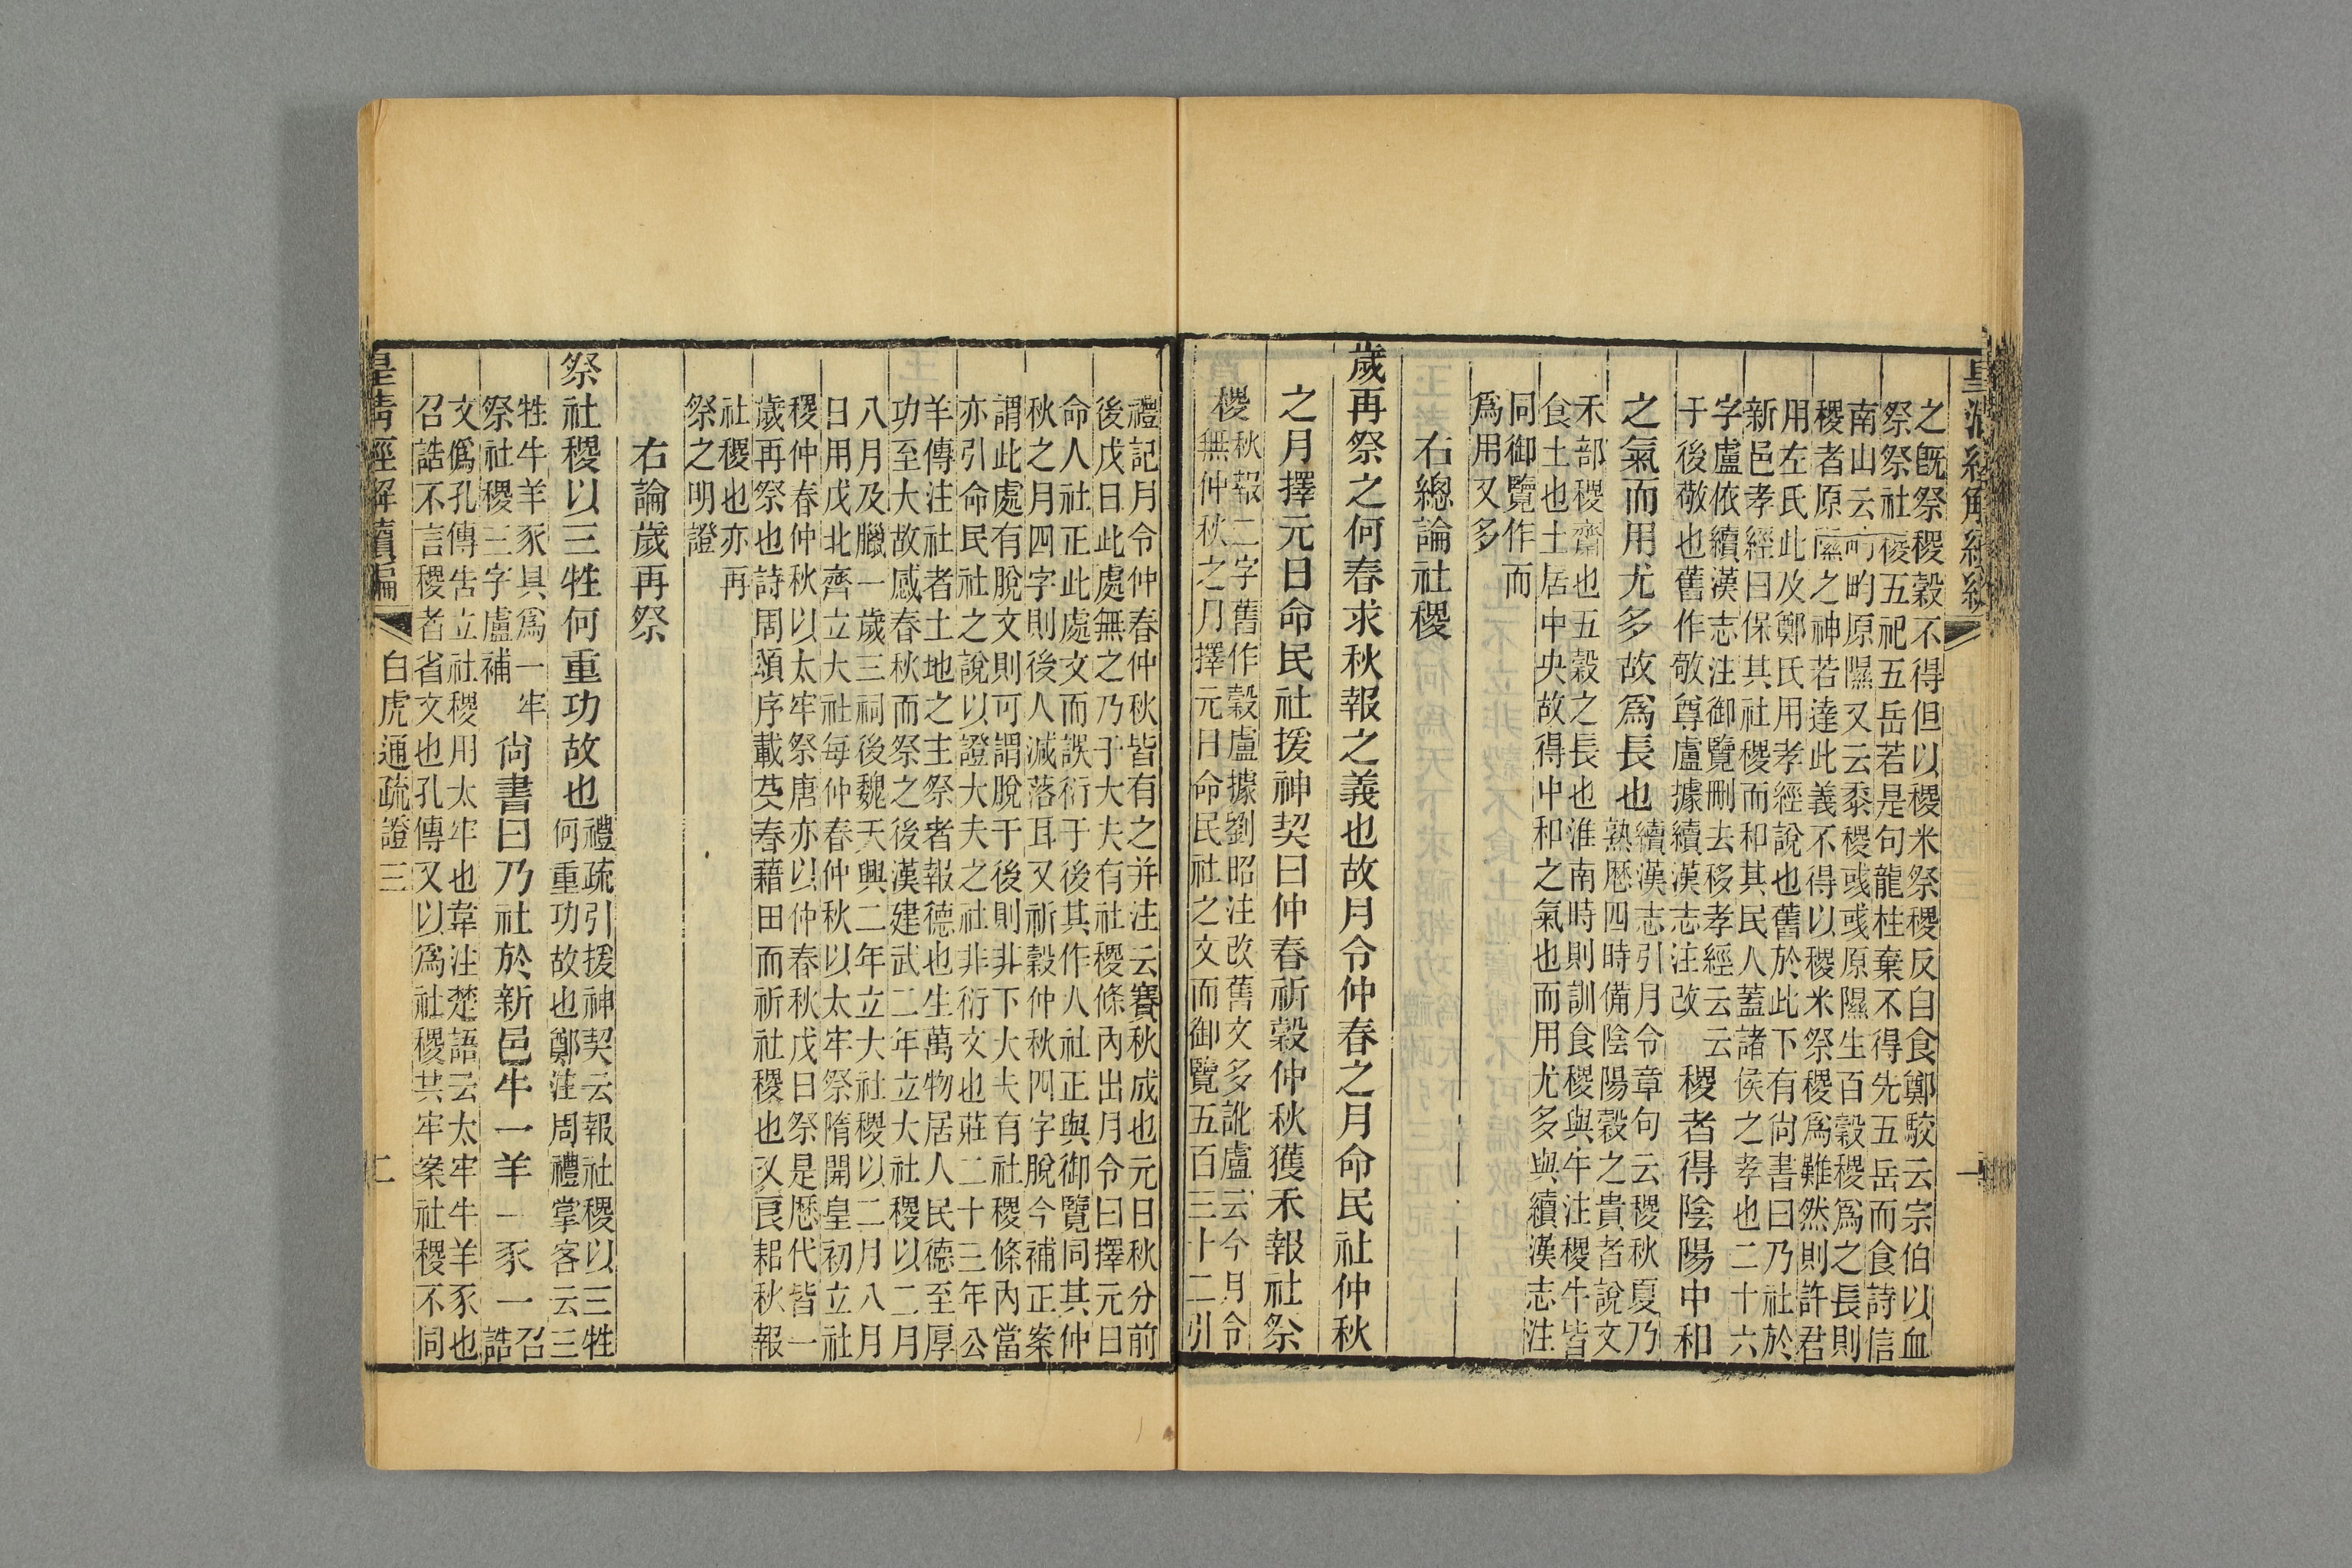 之既祭稷穀不得但以稷米祭稷反自食鄭駮云宗伯以血
祭祭社稷五祀五岳若是句龍柱棄不得先五岳而食詩信
南山云畇畇原隰又云黍稷彧彧原隰生百穀稷爲之長則
稷者原隰之神若達此義不得以稷米祭稷爲難然則許君
用左氏此及鄭氏用孝經說也舊於此下有尙書曰乃社於
新邑孝經曰保其社稷而和其民人蓋諸侯之孝也二十六
字盧依續漢志注御覽刪去移孝經云云
于後敬也舊作敬尊盧據續漢志注改
稷者得陰陽中和
之氣而用尤多故爲長也
續漢志引月令章句云稷秋夏乃
熟歷四時備陰陽穀之貴者說文
禾部稷齋也五穀之長也淮南時則訓食稷與牛注稷牛皆
食土也土居中央故得中和之氣也而用尤多與續漢志注
同御覽作而
爲用又多
右總論社稷
歲再祭之何春求秋報之義也故月令仲春之月命民社仲秋
之月擇元日命民社援神契曰仲春祈穀仲秋獲禾報社祭
稷
秋報二字舊作穀盧據劉昭注改舊文多訛盧云今月令
無仲秋之月擇元日命民社之文而御覽五百三十二引
禮記月令仲春仲秋皆有之并注云賽秋成也元日秋分前
後戊日此處無之乃于大夫有社稷條內出月令曰擇元日
命人社正此處文而誤衍于後其作人社正與御覽同其仲
秋之月四字則後人減落耳又祈穀仲秋四字脫今補正案
謂此處有脫文則可謂脫于後則非下大夫有社稷條內當
亦引命民社之說以證大夫之社非衍文也莊二十三年公
羊傳注社者土地之主祭者報德也生萬物居人民德至厚
功至大故感春秋而祭之後漢建武二年立大社稷以二月
八月及臘一歲三祠後魏天興二年立大社稷以二月八月
日用戊北齊立大社每仲春仲秋以太牢祭隋開皇初立社
稷仲春仲秋以太牢祭唐亦以仲春秋戊日祭是歷代皆一
歲再祭也詩周頌序載芟春藉田而祈社稷也又良耜秋報
社稷也亦再
祭之明證
右論歲再祭
祭社稷以三牲何重功故也
禮疏引援神契云報社稷以三牲
何重功故也鄭注周禮掌客云三
牲牛羊豕具爲一牢
祭社稷三字盧補
尙書曰乃社於新邑牛一羊一豕一
召
誥
文僞孔傳告立社稷用太牢也韋注楚語云太牢牛羊豕也
召誥不言稷者省文也孔傳又以爲社稷共牢案社稷不同
皇清經解續編
白虎通疏證三
二